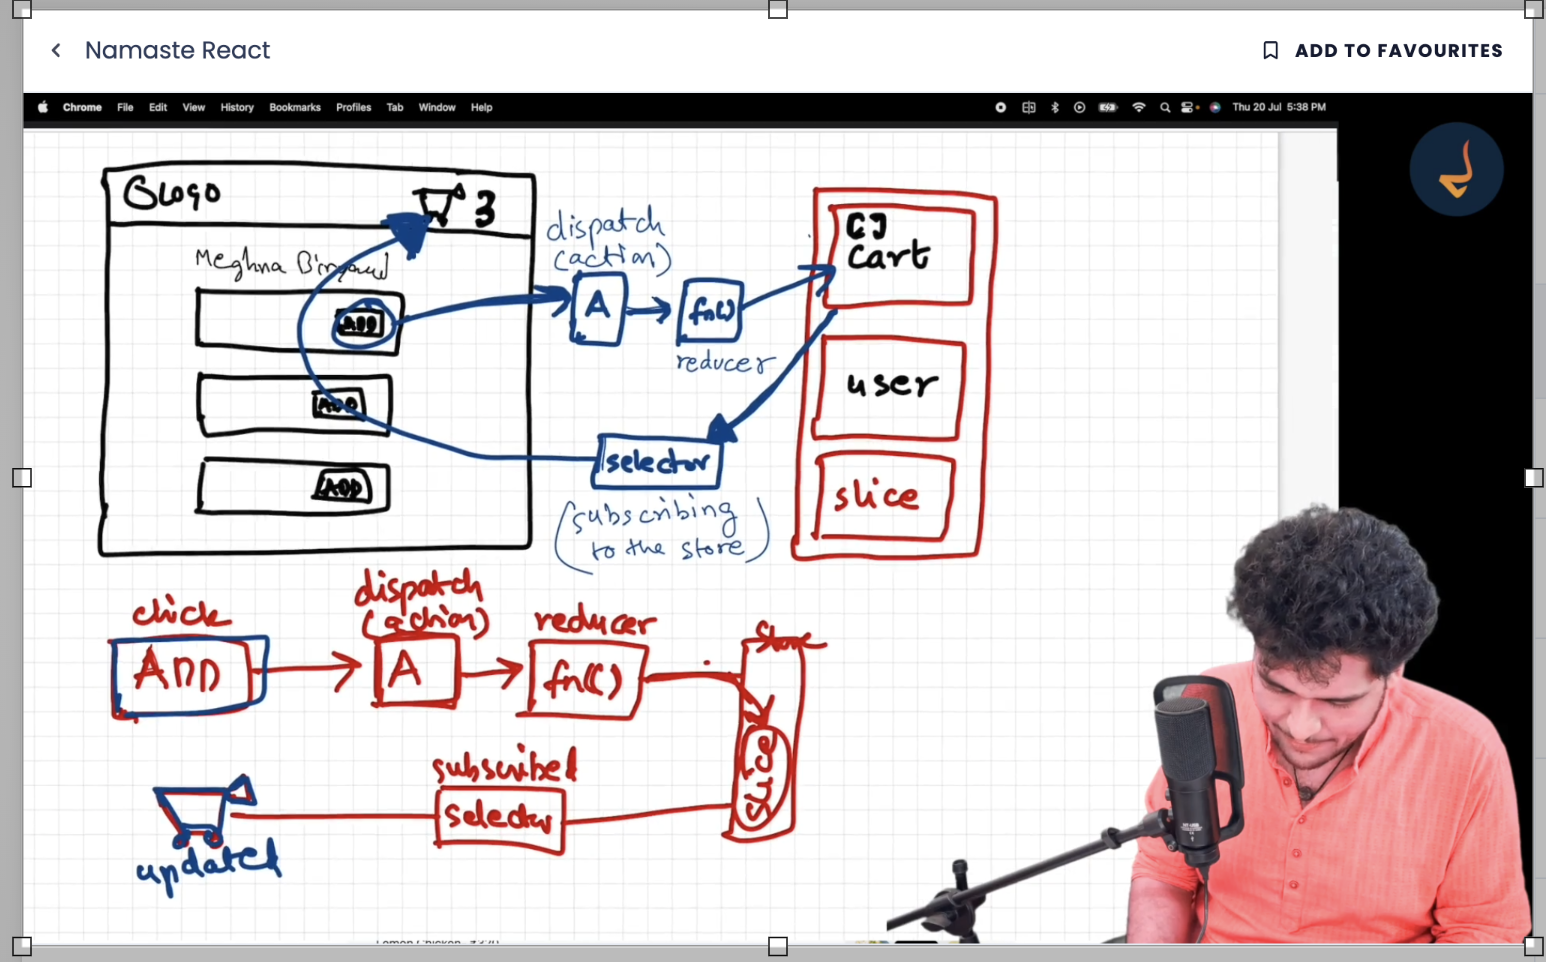 Namaste React
ADD TO FAVOURITES
Chrome File Edit View History Bookmarks Profiles Tab Window Help
Thu 20 Jul 5:38 PM
Logo
3
Meghna
ADD
ADD
ADD
dispatch
(action)
A
fn()
reducer
selector
(subscribing
to the store)
[]
Cart
user
slice
click
ADD
dispatch
(action)
A
reducer
fn()
Store
slice
subscribed
selector
updated